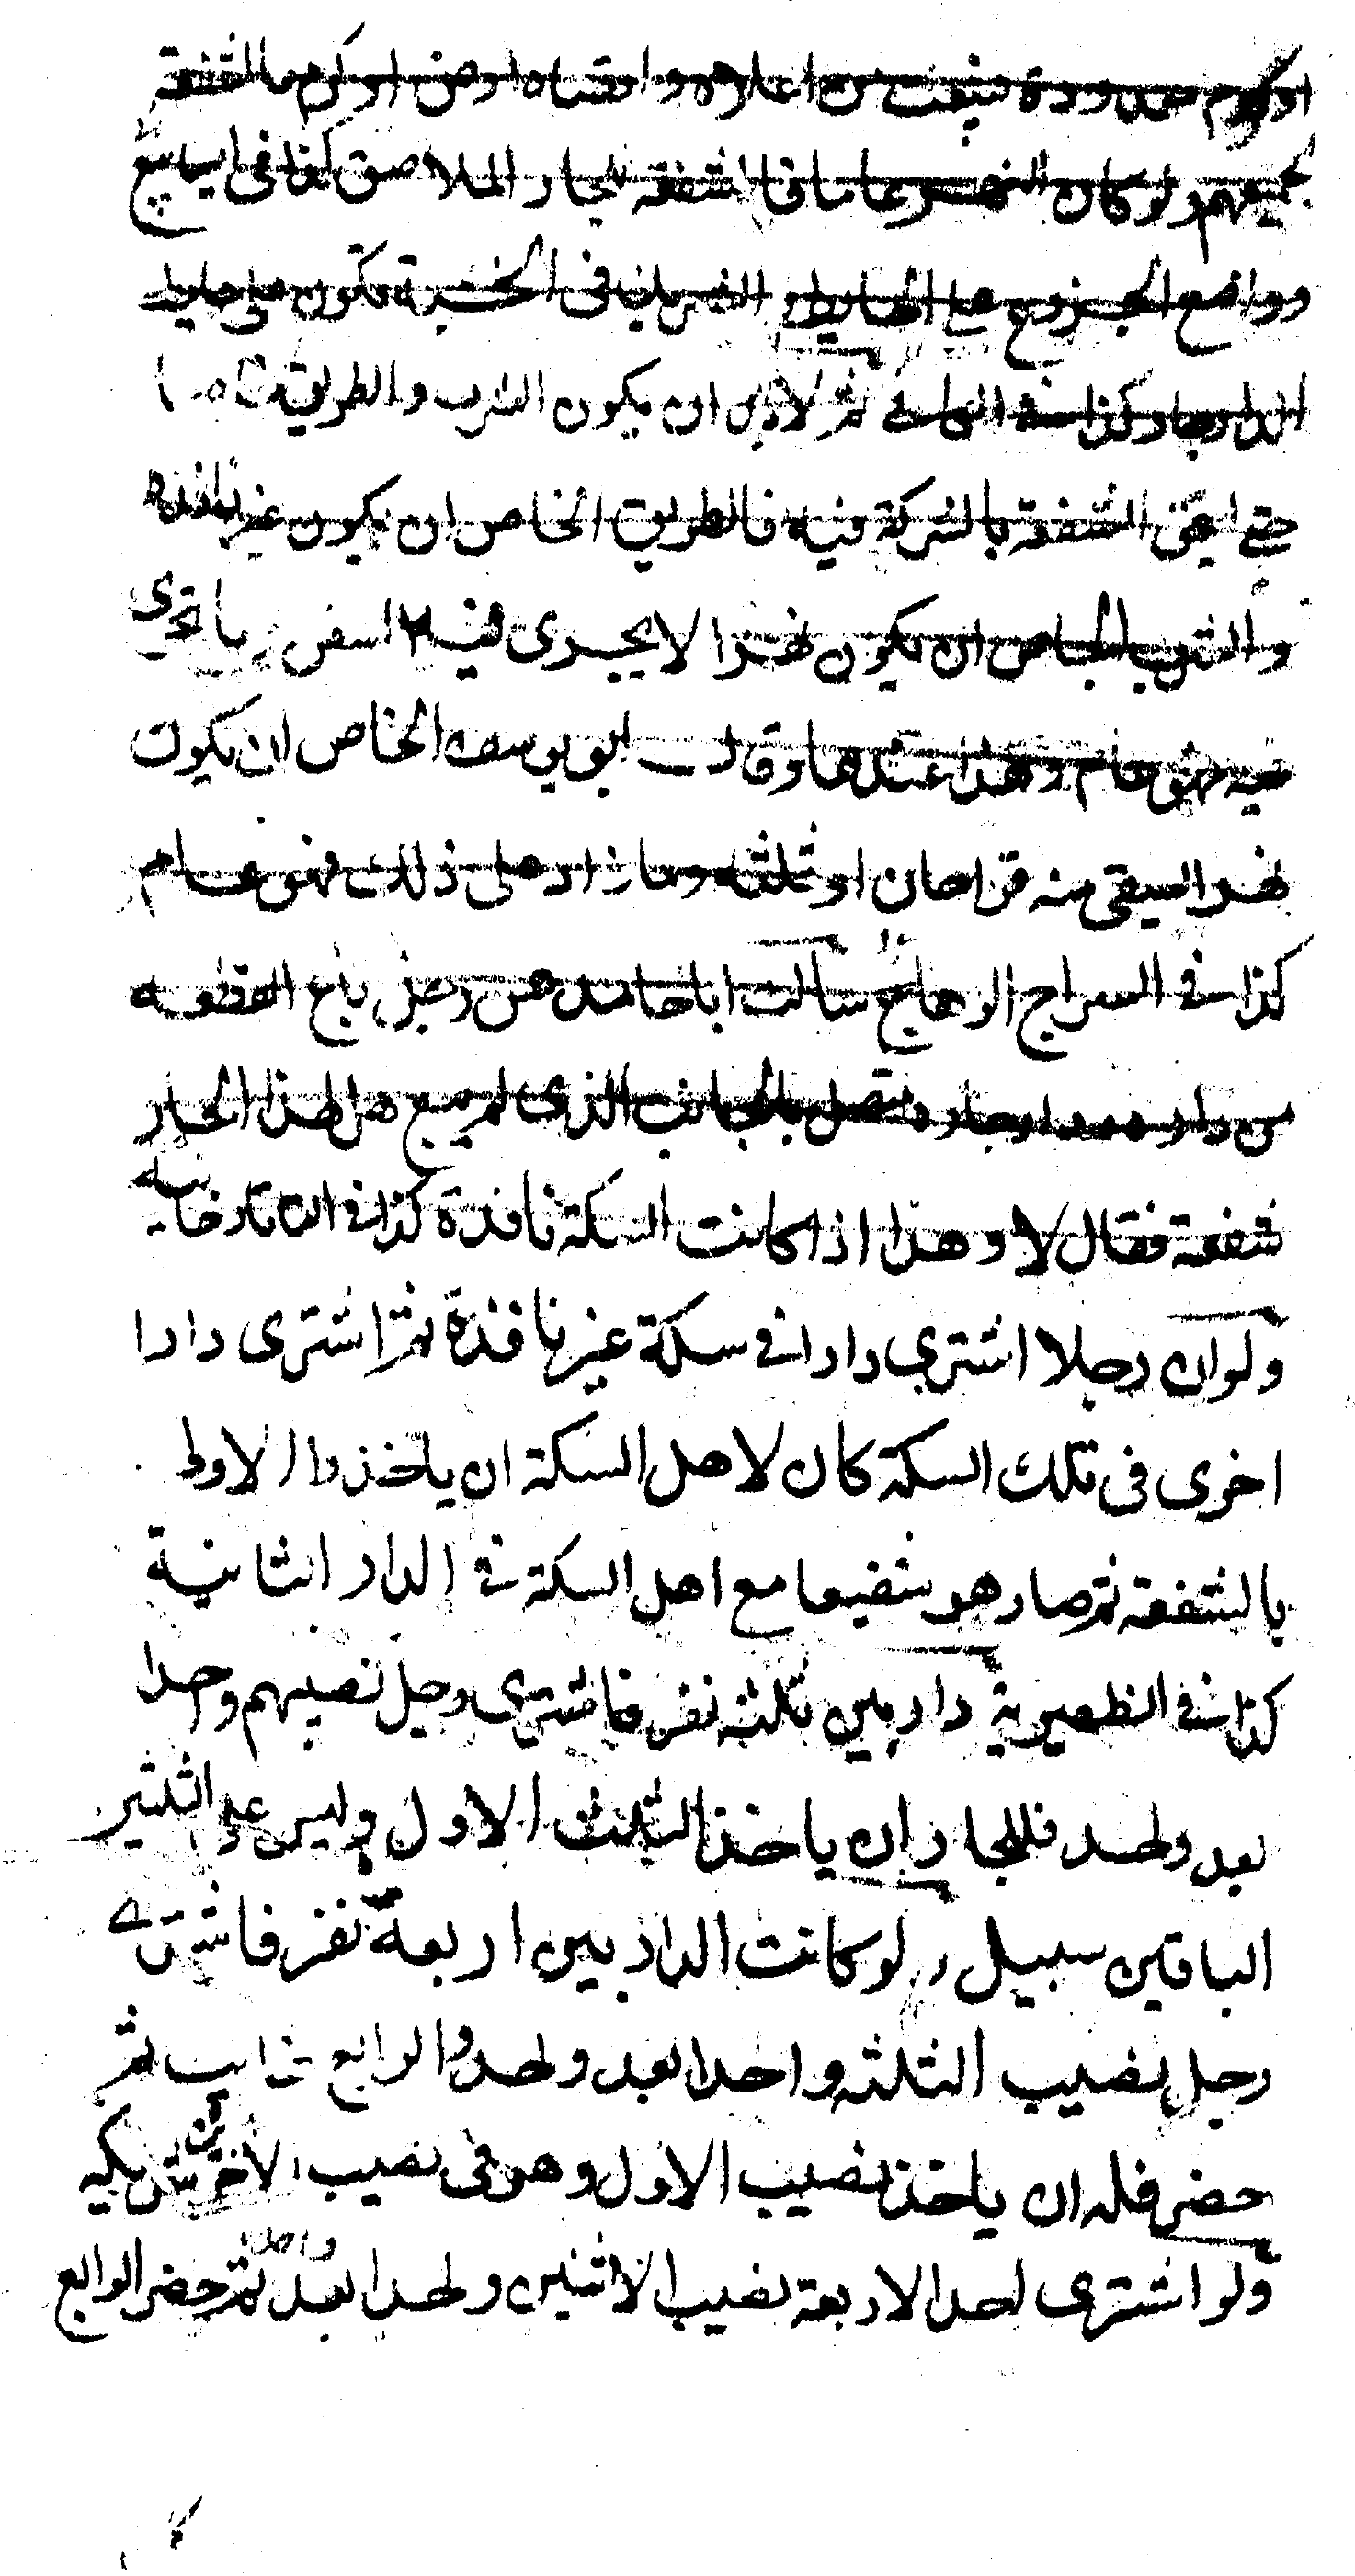 او كروم معدودة فبيعت من اعلاه واقصاه او من اوكرم فالشفعة
لجميعهم ولو كان النهر عاما فالشفعة للجار الملاصق كذا فى الينابيع
وواضع الجذوع على الحايط والشريك فى الخشبة تكون على حايط
الدار جار كذا فى الكافى ثم لابد ان يكون الشرب والطريق خاصا
حتى يستحق الشفعة بالشركة فيه فالطريق الخاص ان يكون غير نافذة
والشرب الخاص ان يكون نهرا لا يجرى فيه السفن وما تجرى
فيه فهو عام وهذا عندهما وقال ابو يوسف الخاص ان يكون
نهرا يسقى منه قراحان او ثلثه وما زاد على ذلك فهو عام
كذا فى السراج الوهاج سالت ابا حامد عن رجل باع القطعه
من داره ودار جاره متصل بالجانب الذى لم يبع هل لهذا الجار
شفعة فقال لا وهذا اذا كانت السكة نافذة كذا فى التاتارخانيه
ولو ان رجلا اشترى دارا فى سكة غير نافذة ثم اشترى دارا
اخرى فى تلك السكة كان لاهل السكة ان ياخذوا الاولى
بالشفعة ثم صار هو شفيعا مع اهل السكة فى الدار الثانية
كذا فى الظهيرية دار بين ثلثه نفر فاشترى رجل نصيبهم واحدا
بعد واحد فللجار ان ياخذ الثلث الاول وليس على الثلثين
الباقين سبيل ولو كانت الدار بين اربعة نفر فاشترى
رجل نصيب الثلثه واحدا بعد واحد والرابع غايب ثم
حضر فله ان ياخذ نصيب الاول وهو فى نصيب الاخرين شريكيه
ولو اشترى احد الاربعة نصيب الاثنين واحدا بعد واحد ثم حضر الرابع